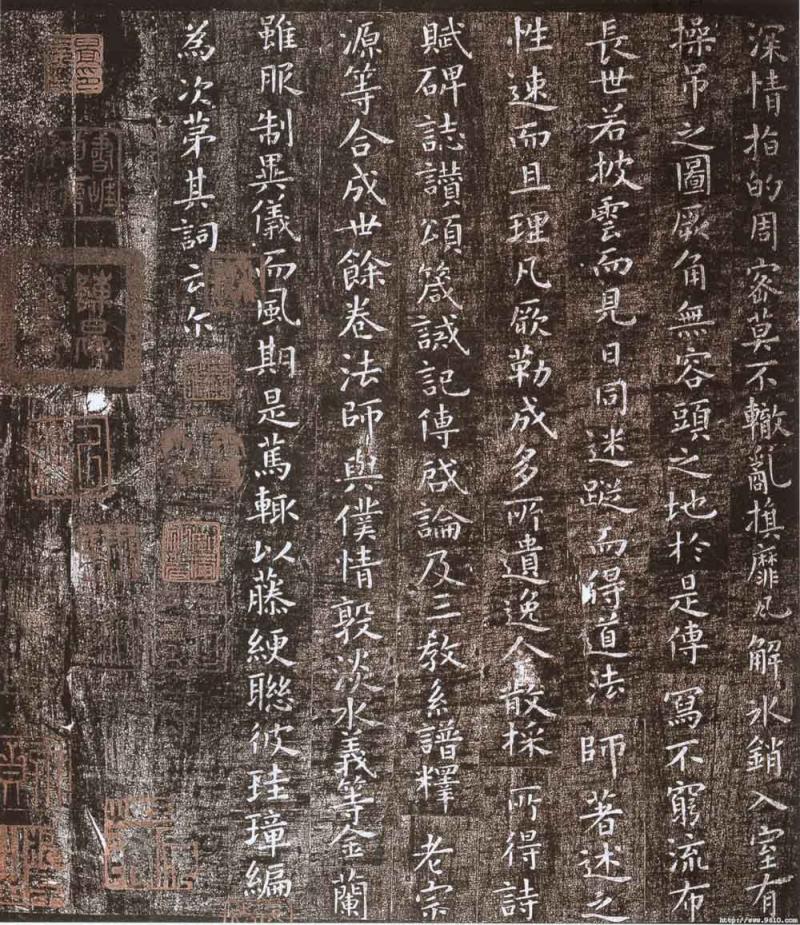 深情指的周密莫不轍亂旗靡瓦解冰銷入室有
操吊之圖厥角無容頭之地於是傳寫不窮流布
長世若披雲而見日同迷蹤而得道法師著述之
性速而且理凡厥勒成多所遺逸今散採所得詩
賦碑誌讃頌箴誡記傳啓論及三教系譜釋老宗
源等合成卅餘卷法師與僕情敦淡水義等金蘭
雖服制異儀而風期是篤輒以藤綆聯彼珪璋編
為次第其詞云尔
http://www.9610.com